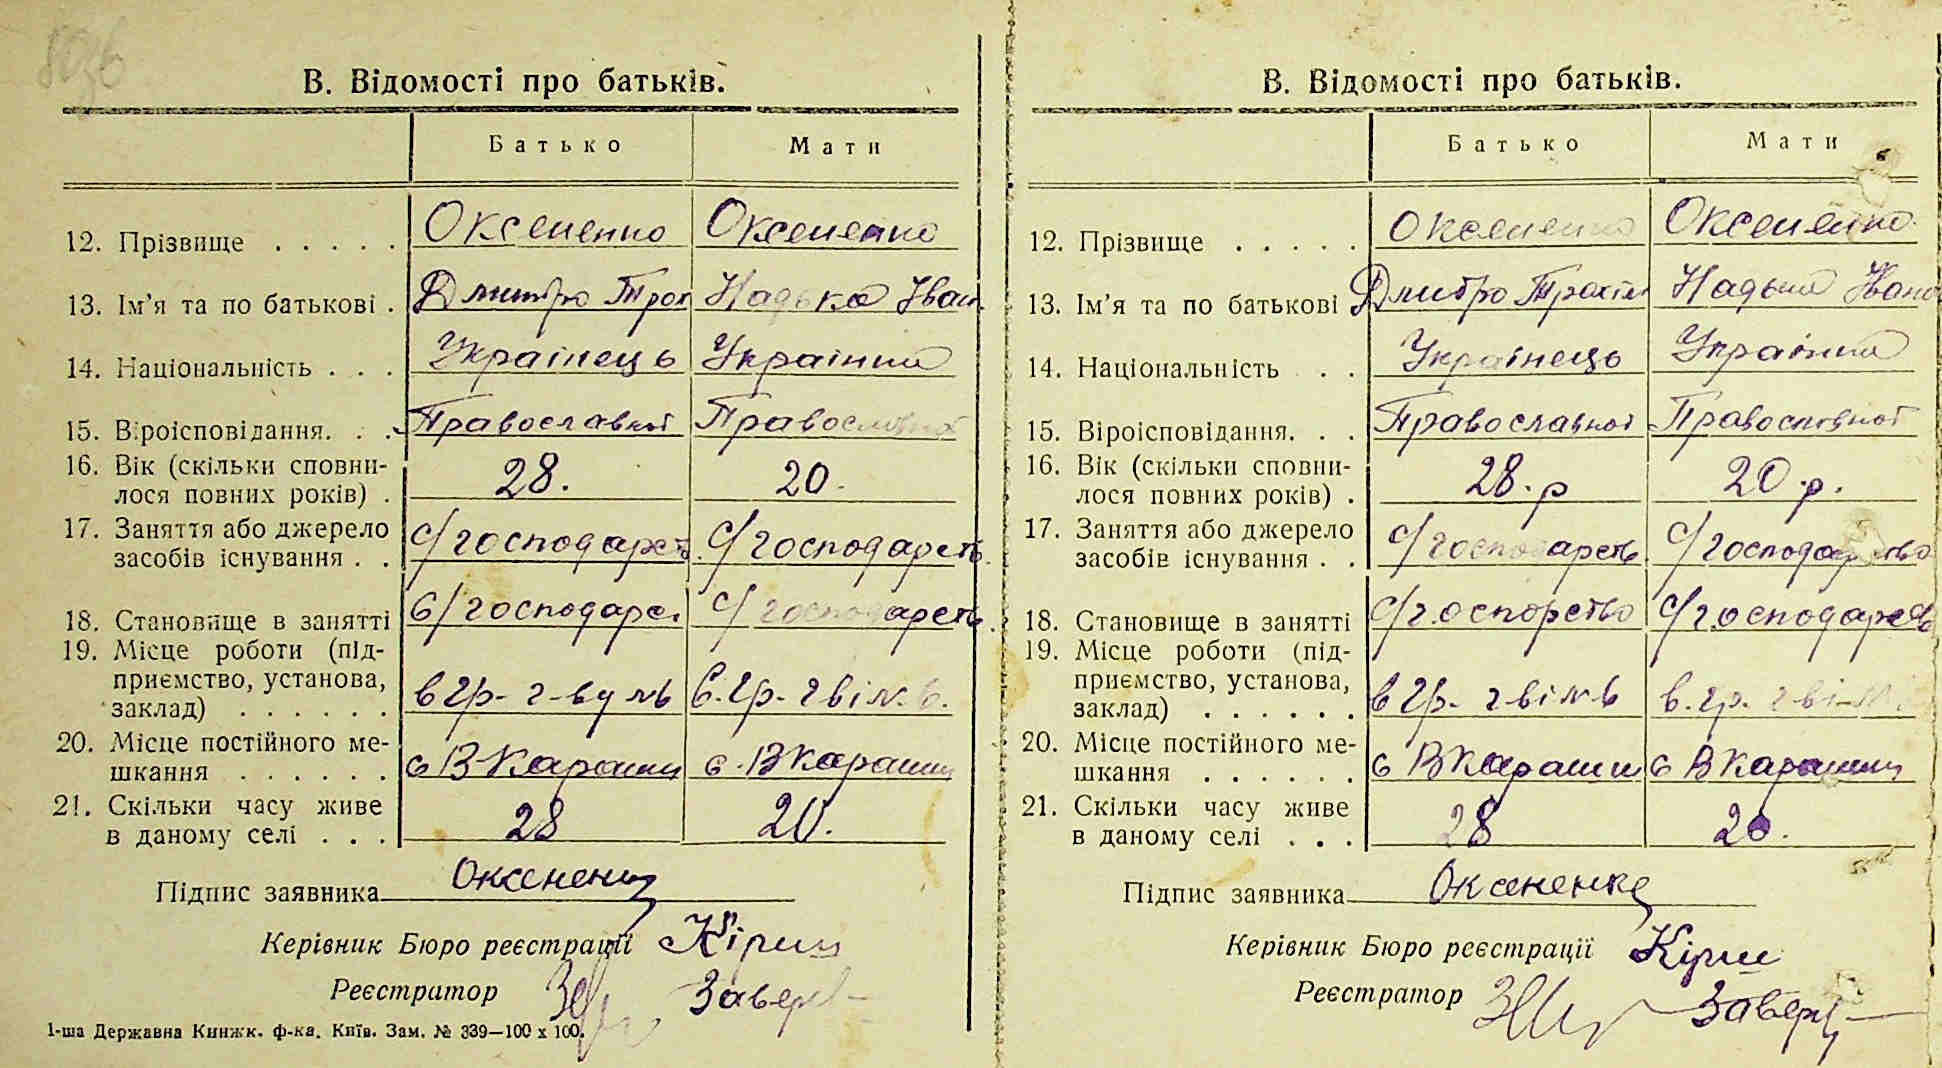 В. Відомості про батьків.
Батько Мати
12. Прізвище . . . . . Оксененко Оксененко
13. Ім'я та по батькові . Дмитро Трох Надька Іван
14. Національність . . . Українець Українка
15. Віроісповідання. . . Православної Православної
16. Вік (скільки сповни-
лося повних років) . 28. 20.
17. Заняття або джерело
засобів існування . . с/господарств с/господарств
18. Становище в занятті с/господарс. с/господарств
19. Місце роботи (під-
приємство, установа,
заклад) . . . . . .
20. Місце постійного ме-
шкання . . . . . . с В Карашин с. В Карашин
21. Скільки часу живе
в даному селі . . . 28 20.
Підпис заявника Оксененко
Керівник Бюро реєстрації Кірш
Реєстратор
1-ша Державна Книжк. ф-ка. Київ. Зам. № 339—100 x 100.
В. Відомості про батьків.
Батько Мати
12. Прізвище . . . . . Оксененко Оксененко
13. Ім'я та по батькові Дмитро Трохим Надька Івано
14. Національність . . Українець Українка
15. Віроісповідання. . . Православної Православної
16. Вік (скільки сповни-
лося повних років) . 28.р 20.р.
17. Заняття або джерело
засобів існування . . с/господарств с/господарство
18. Становище в занятті с/г.оспорство с/господарство
19. Місце роботи (під-
приємство, установа,
заклад) . . . . . .
20. Місце постійного ме-
шкання . . . . . . с В Карашин с В Карашин
21. Скільки часу живе
в даному селі . . . 28 20.
Підпис заявника Оксененко
Керівник Бюро реєстрації Кірш
Реєстратор